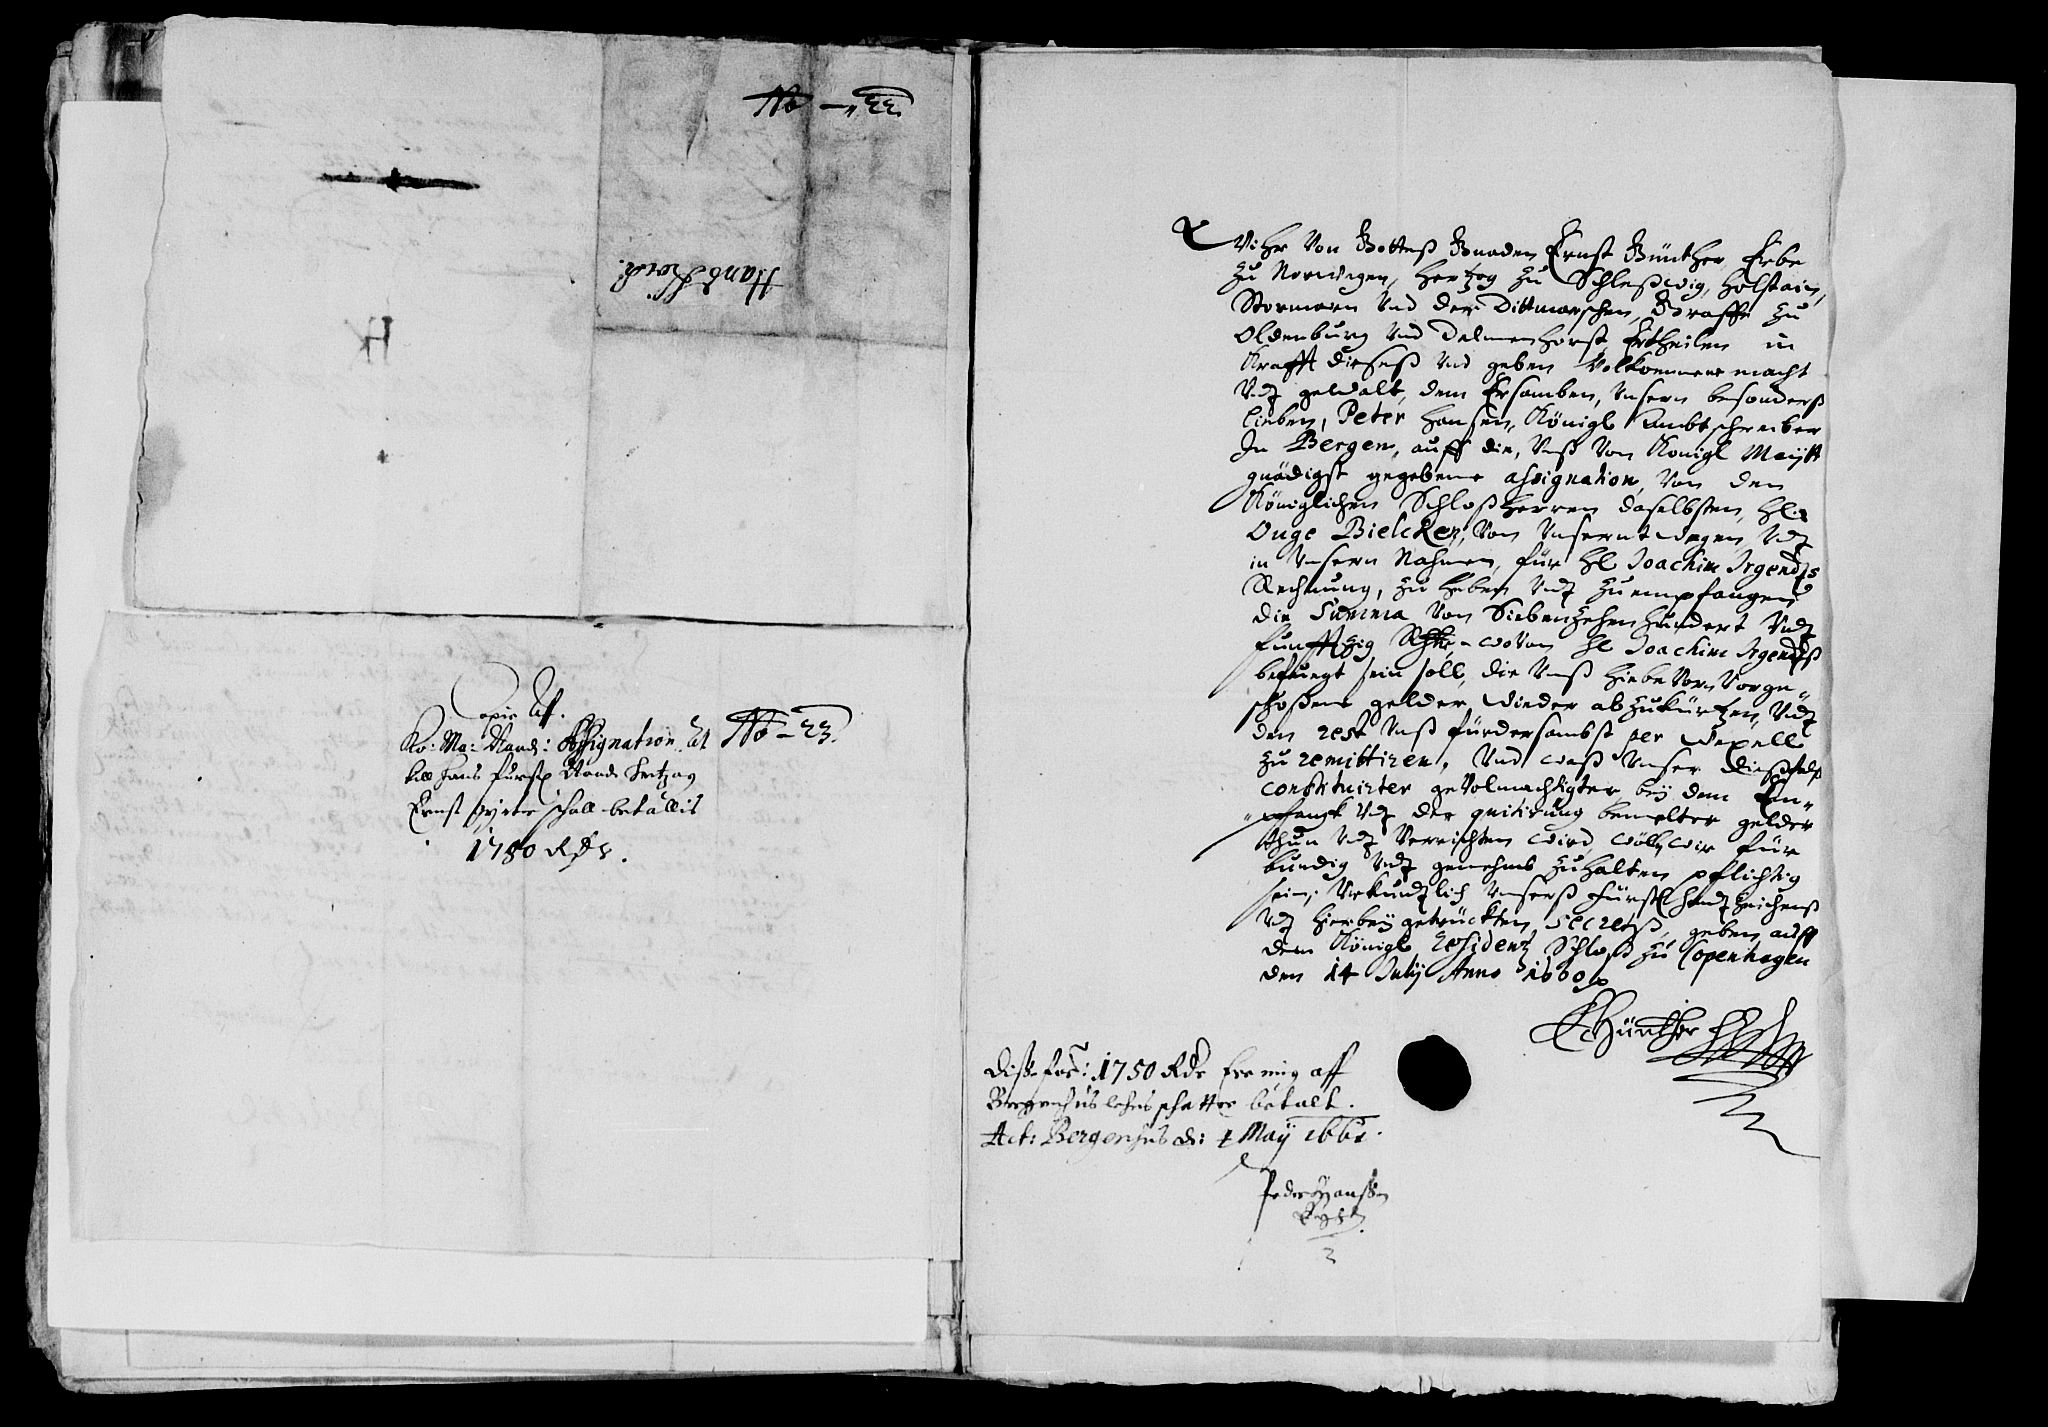 No – 22.
Hans Krich.
H
Copie Aff.
Ko: Ma: Naad: Assignation at
hans fürstl Naade Hertzog
Ernst gynter schall betallis
1750 Rdr.
No – 23.
Wihr Von Gotteß Gnaden Ernst Günther, Erbe
zu Norwegen, Hertzog zu Schleßwig, Holstain,
Stormarn Vnd der Dittmarschen, Graffe zu
Oldenburg Vnd Delmenhorst, Ertheilen in
Krafft dieseß Vnd geben Volkommene macht
Vndt gewalt, dem Ersamben, Vnsern besonderß
lieben, Peter Hansen, Königl Ambtschreiber
In Bergen, auff die, Vnß Von Königl Maÿtt
gnädigst gegebene assignation, Von den
Königlichen Schloßherren daselbsten, Hl:
Ouge Bielcken, Von Vnserntwegen, Vndt
in Vnsern Nahmen, für Hl Joachim Irgendts
Rechnung, zu heben Vndt zu empfangen
die Summa Von Siebenzehenhundert Vndt
funfftzig Rthlr, – woVon Hl Joachim Irgendtß
befuegt sein soll, die Vnß hiebeVorn Vorge„
schoßene gelder, wieder abzukürtzen, Vndt
den rest Vnß fürdersambst per Wexell
zu remittiren, Vnd waß Vnser dießfalß
constituirter geVolmachtigter beÿ dem Em„
„pfangk Vndt der quitirung bemelter gelder
thun Vndt Verrichten wird, wöllen wir für
bundig Vndt genehmb zuhalten pflichtig
sein, Vrkundtlich Vnserß fürstl handtzeichenß
Vndt hierbeÿ getrückten Secretß, geben auff
dem Königl Residentz Schloß zu Copenhagen
den 14 Julÿ Anno 1660
EGünther HZSH
Diße for: 1750 Rdr Ere mig aff
Bergenhus lehns schatter betalt.
Act: Bergenhus d: 1 Maÿ 1661.
Peder Hanßen